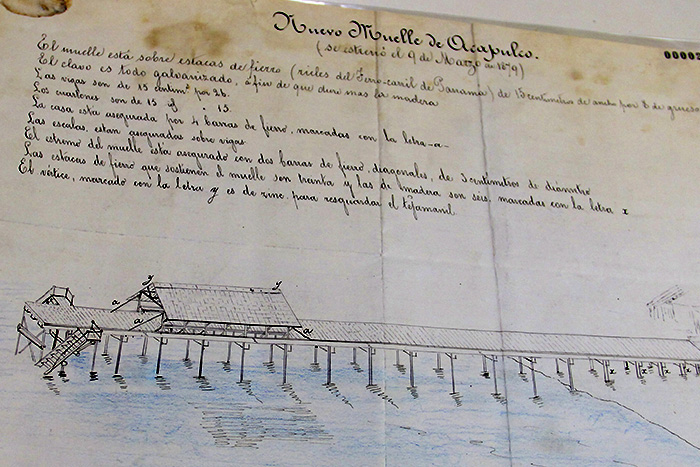 Nuevo Muelle de Acapulco.
(se estrenó el 9 de Marzo de 1879)
0000
El muelle está sobre estacas de fierro (rieles del Ferro-carril de Panamá) de 13 centimetros de ancho por 8 de grueso
El clavo es todo galvanizado, a fin de que dure mas la madera
Las vigas son de 15 centim.s por 26.
Los cuartones son de 15 " . 13.
La casa esta asegurada por 4 barras de fierro, marcadas con la letra-a-
Las escalas, estan aseguradas sobre vigas
El estremo del muelle está asegurado con dos barras de fierro, diagonales, de 3 centimetros de diámetro
Las estacas de fierro que sostienen el muelle son treinta y las de madera son seis, marcadas con la letra x
El vértice, marcado con la letra y es de zinc para resguardar el tejamanil
y
y
a
a
a
x
x
x
x